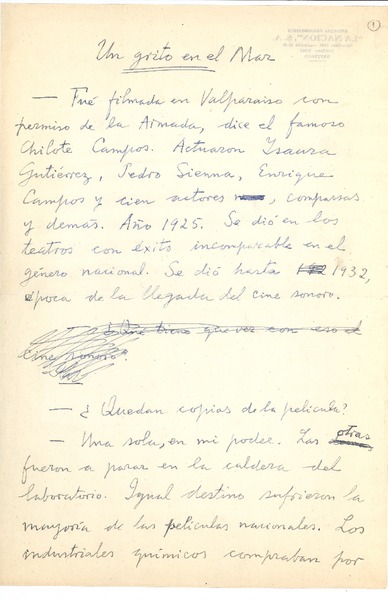 1
"LA NACION" S. A.
Un grito en el Mar
— Fué filmada en Valparaíso con
permiso de la Armada, dice el famoso
Chilote Campos. Actuaron Isaura
Gutiérrez, Pedro Sienna, Enrique
Campos y cien actores, comparsas
y demás. Año 1925. Se dió en los
teatros con éxito incomparable en el
género nacional. Se dió hasta 1932,
época de la llegada del cine sonoro.
— ¿Qué tiene que ver con eso el
cine sonoro?
— ¿Quedan copias de la película?
— Una sola, en mi poder. Las otras
fueron a parar en la caldera del
laboratorio. Igual destino sufrieron la
mayoría de las películas nacionales. Los
industriales químicos compraban por